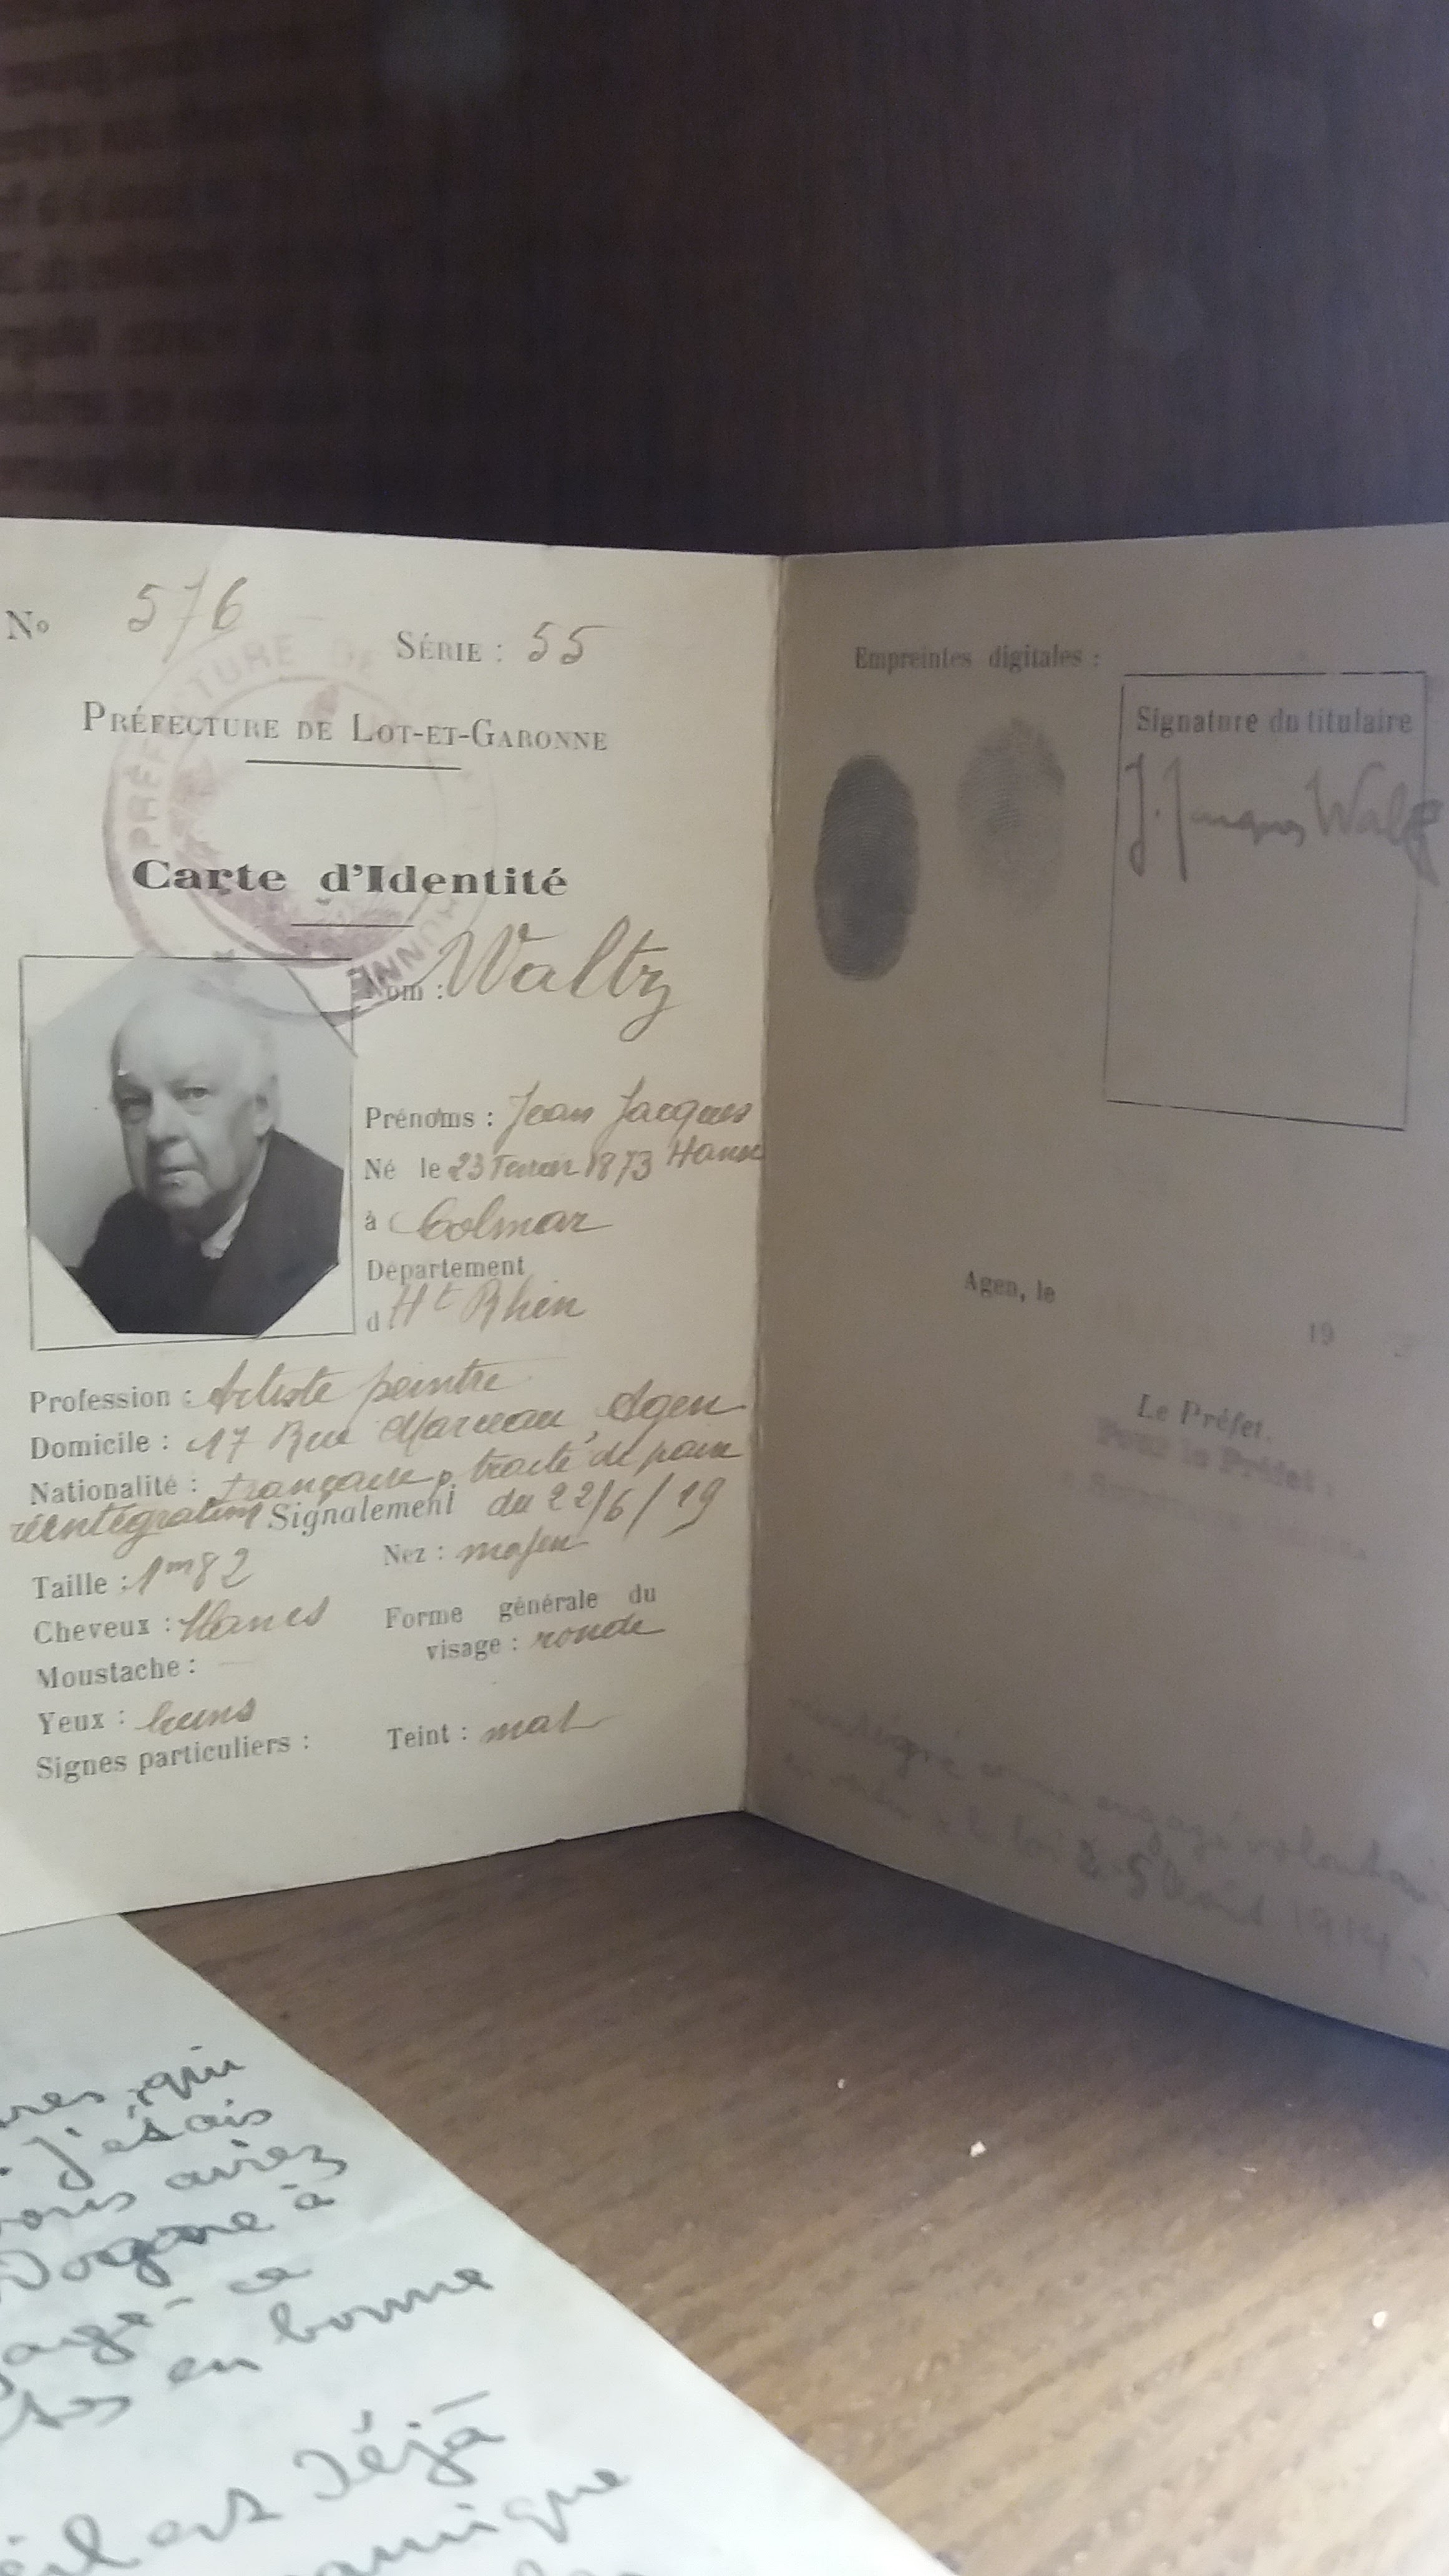 Nº 576 SÉRIE : 55
PRÉFECTURE DE LOT-ET-GARONNE
PRÉFECTURE DE
Carte d'Identité
Nom : Waltz
Prénoms : Jean Jacques
Né le 23 1873 Hansi
à Colmar
Département
d Ht Rhin
Profession : Artiste peintre
Domicile : 17 Rue Marceau Agen
Nationalité : française p. traité de paix
réintégration Signalement du 22/6/19
Taille : 1m82
Nez : moyen
Cheveux : blancs
Forme générale du
visage : ronde
Moustache : —
Yeux : bruns
Teint : mat
Signes particuliers :
Empreintes digitales :
Signature du titulaire
J. Jacques Waltz
Agen, le
19
Le Préfet.
Pour le Préfet :
engagé
1914
qui
J'étais
vous aviez
à
ce
en bonne
il est déjà